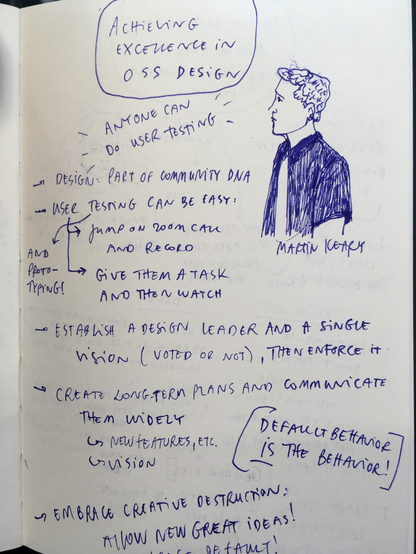 ACHIEVING
EXCELLENCE IN
OSS DESIGN
ANYONE CAN
DO USER TESTING
MARTIN KEARY
→ DESIGN: PART OF COMMUNITY DNA
→ USER TESTING CAN BE EASY:
JUMP ON ZOOM CALL
AND RECORD
GIVE THEM A TASK
AND THEN WATCH
AND
PROTO-
TYPING!
→ ESTABLISH A DESIGN LEADER AND A SINGLE
VISION (VOTED OR NOT), THEN ENFORCE IT
→ CREATE LONG-TERM PLANS AND COMMUNICATE
THEM WIDELY
↳ NEW FEATURES, ETC.
↳ VISION
DEFAULT BEHAVIOR
IS THE BEHAVIOR!
→ EMBRACE CREATIVE DESTRUCTION:
ALLOW NEW GREAT IDEAS!
DEFAULT!